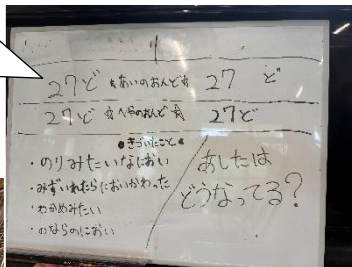 27ど ☆あいのおんど☆ 27 ど
27ど ☆へやのおんど☆ 27ど
●きづいたこと●
・のりみたいなにおい
・みずいれたらにおいがわった
・わかめみたい
・おならのにおい
あしたは
どうなってる?